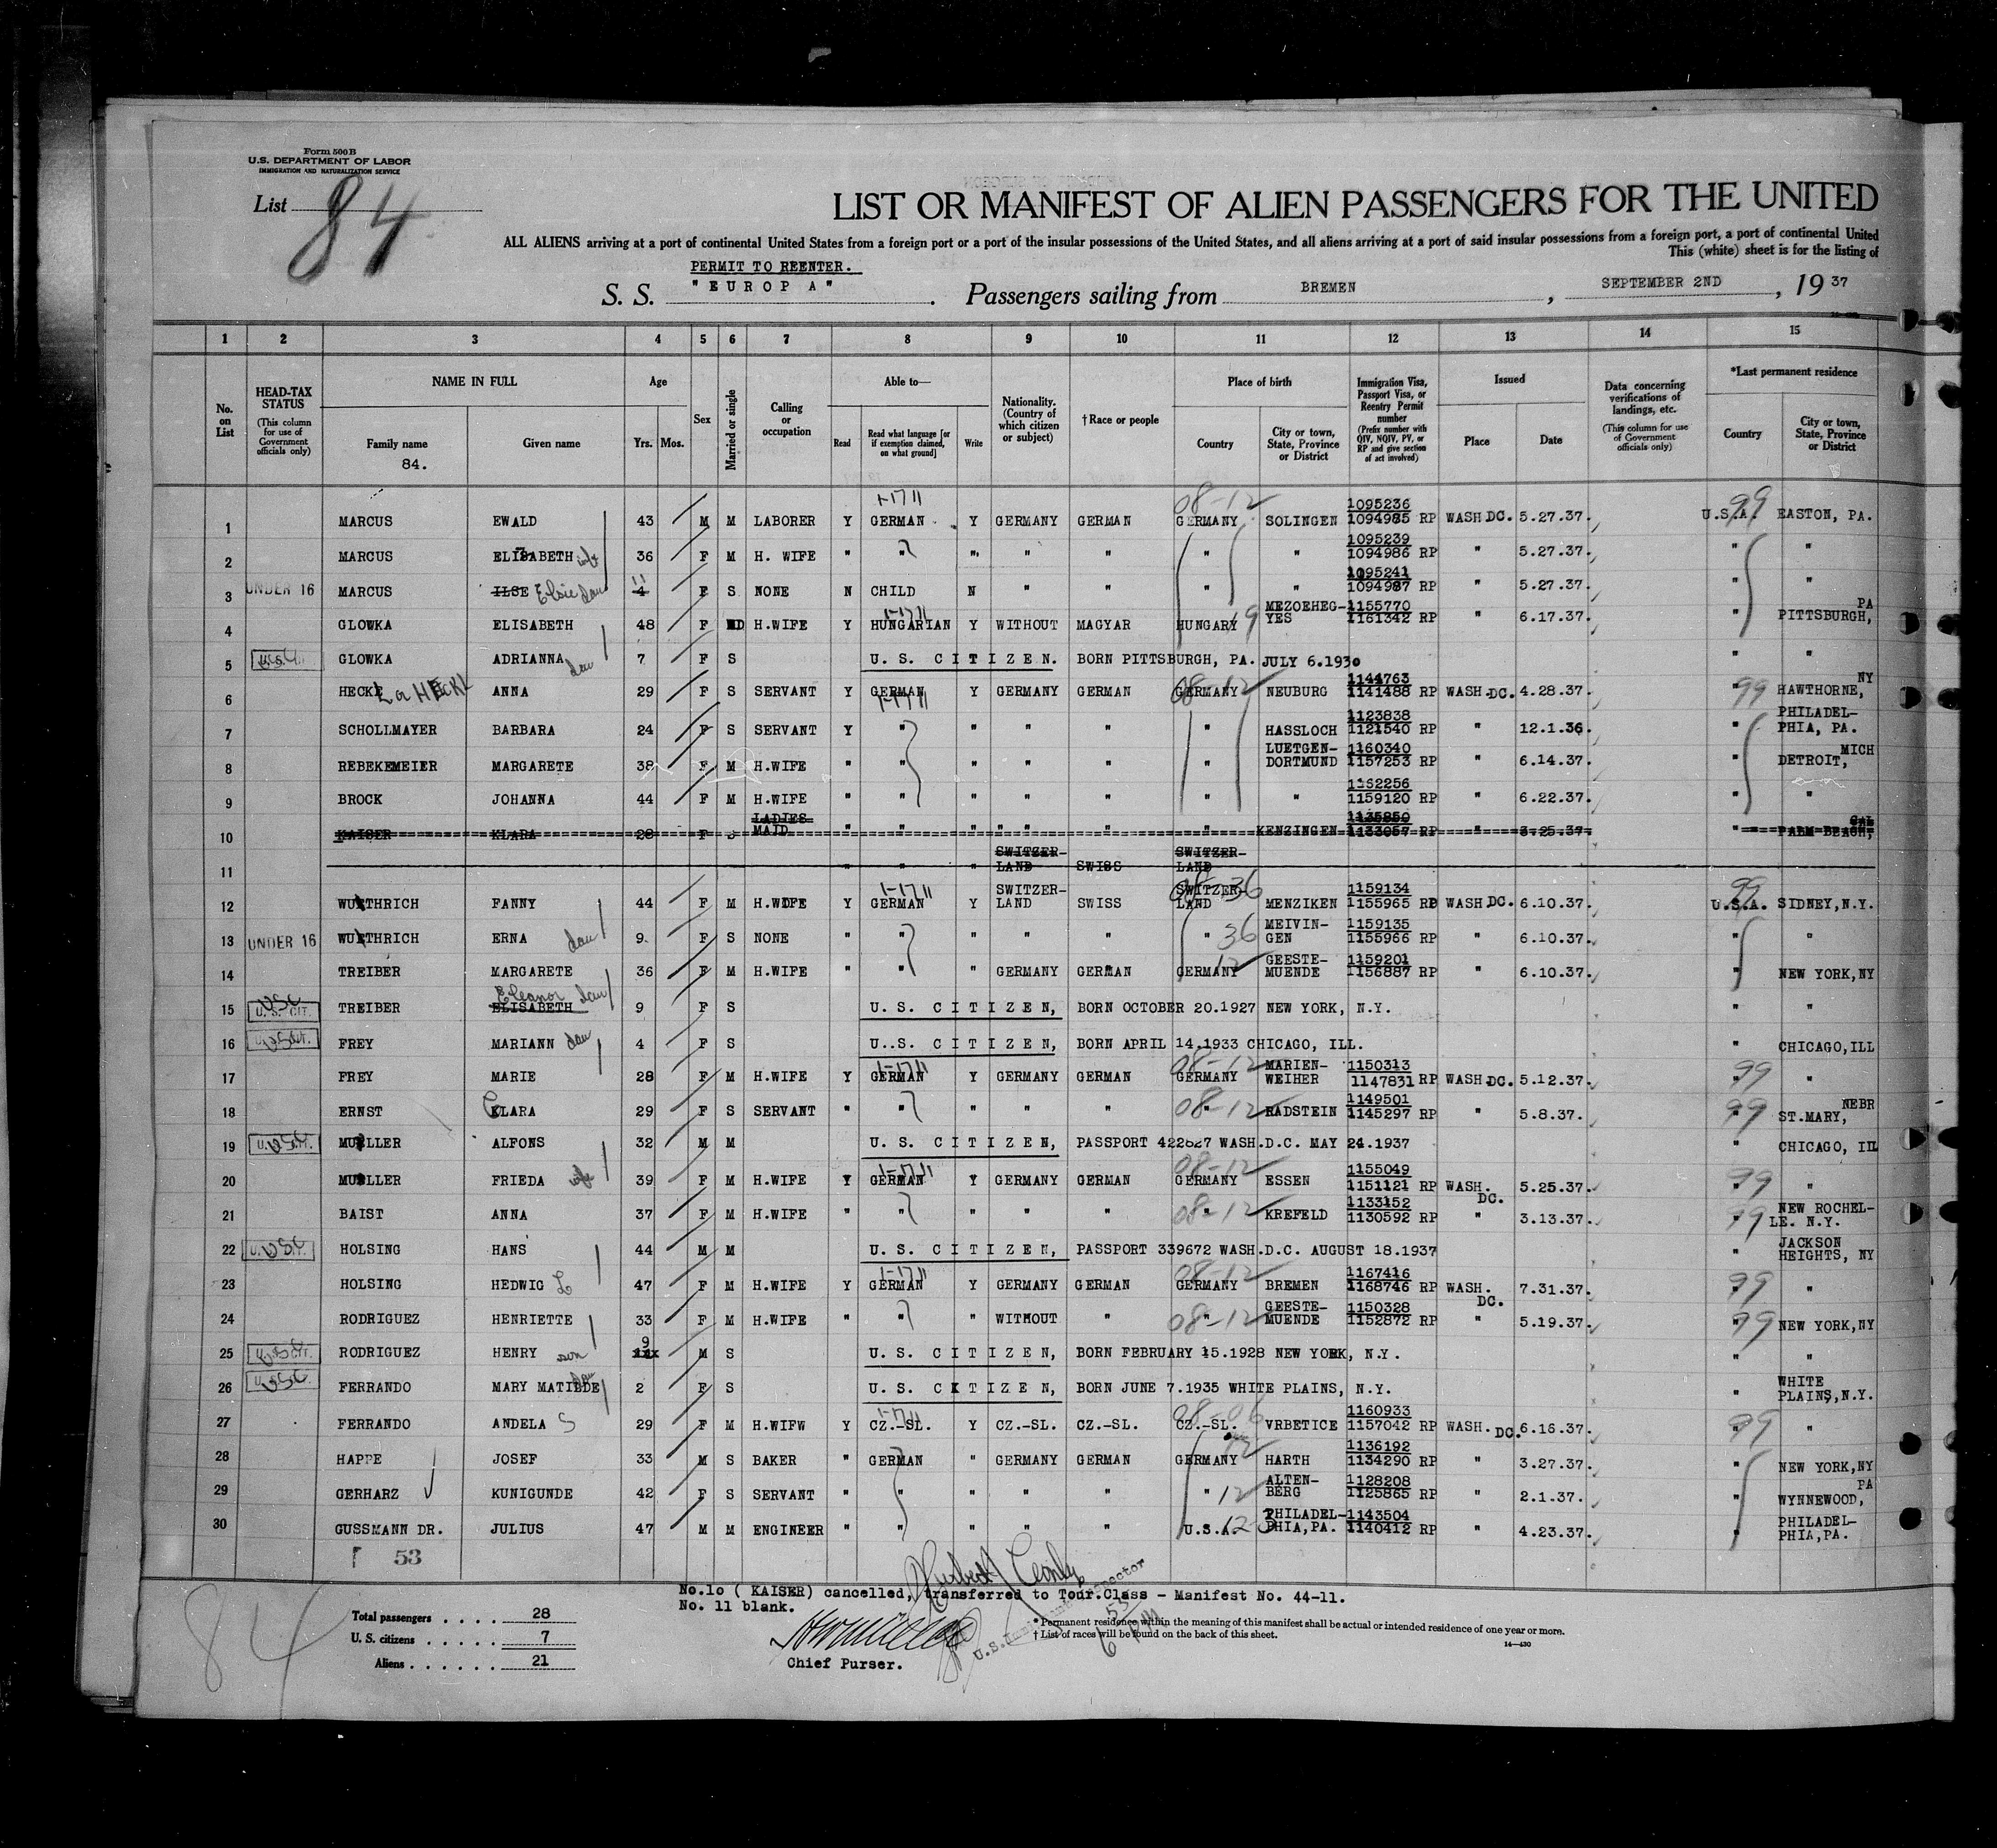 Form 500B
U.S. DEPARTMENT OF LABOR
IMMIGRATION AND NATURALIZATION SERVICE
List 84
LIST OR MANIFEST OF ALIEN PASSENGERS FOR THE UNITED
ALL ALIENS arriving at a port of continental United States from a foreign port or a port of the insular possessions of the United States, and all aliens arriving at a port of said insular possessions from a foreign port, a port of continental United
This (white) sheet is for the listing of
PERMIT TO REENTER.
S. S. "EUROPA". Passengers sailing from BREMEN, SEPTEMBER 2ND, 1937
1 2 3 4 5 6 7 8 9 10 11 12 13 14 15
No. on List
HEAD-TAX STATUS (This column for use of Government officials only)
NAME IN FULL
Family name
84.
Given name
Age
Yrs. Mos.
Sex
Married or single
Calling or occupation
Able to—
Read
Read what language [or if exemption claimed, on what ground]
Write
Nationality. (Country of which citizen or subject)
†Race or people
Place of birth
Country
City or town, State, Province or District
Immigration Visa, Passport Visa, or Reentry Permit number (Prefix number with QIV, NQIV, PV, or RP and give section of act involved)
Issued
Place
Date
Data concerning verifications of landings, etc. (This column for use of Government officials only)
*Last permanent residence
Country
City or town, State, Province or District
1 MARCUS EWALD 43 M M LABORER Y GERMAN Y GERMANY GERMAN GERMANY 08-12 SOLINGEN 1095236 1094985 RP WASH DC. 5.27.37. U.S.A. 99 EASTON, PA.
2 MARCUS ELISABETH wife 36 F M H. WIFE " " " " " " " 1095239 1094986 RP " 5.27.37. " "
3 UNDER 16 MARCUS ILSE Elsie dau 4 11 F S NONE N CHILD N " " " " 1095241 1094987 RP " 5.27.37. " "
4 GLOWKA ELISABETH 48 F WD H.WIFE Y HUNGARIAN Y WITHOUT MAGYAR HUNGARY 19 MEZOEHEG-YES 1155770 1161342 RP " 6.17.37. " PITTSBURGH, PA
5 GLOWKA ADRIANNA dau 7 F S U. S. CITIZEN. BORN PITTSBURGH, PA. JULY 6.1930 " "
6 HECKL or HECKL ANNA 29 F S SERVANT Y GERMAN Y GERMANY GERMAN GERMANY 08-12 NEUBURG 1144763 1141488 RP WASH.DC. 4.28.37. " 99 HAWTHORNE, NY
7 SCHOLLMAYER BARBARA 24 F S SERVANT Y " " " " " HASSLOCH 1123838 1121540 RP " 12.1.36. " PHILADEL-PHIA, PA.
8 REBEKEMEIER MARGARETE 38 F M H.WIFE " " " " " " LUETGEN-DORTMUND 1160340 1157253 RP " 6.14.37. " DETROIT, MICH
9 BROCK JOHANNA 44 F M H.WIFE " " " " " " " 1162256 1159120 RP " 6.22.37. " "
10 KAISER KLARA 28 F S LADIES MAID " " " " " KENZINGEN 1135850 1133057 RP " 3.25.37. " PALM BEACH, CAL
11 " " " SWITZER-LAND SWISS SWITZER-LAND
12 WUTHRICH FANNY 44 F M H.WIFE Y GERMAN Y SWITZER-LAND SWISS SWITZER-LAND 08-36 MENZIKEN 1159134 1155965 RP WASH DC. 6.10.37. U.S.A. 99 SIDNEY,N.Y.
13 UNDER 16 WUTHRICH ERNA dau 9 F S NONE " " " " " " 36 MEIVIN-GEN 1159135 1155966 RP " 6.10.37. " "
14 TREIBER MARGARETE 36 F M H.WIFE " " " GERMANY GERMAN GERMANY 12 GEESTE-MUENDE 1159201 1156887 RP " 6.10.37. " NEW YORK,NY
15 U. S. CIT. USC TREIBER ELISABETH Eleanor dau 9 F S U. S. CITIZEN, BORN OCTOBER 20.1927 NEW YORK, N.Y. " "
16 FREY MARIANN dau 4 F S U..S. CITIZEN, BORN APRIL 14.1933 CHICAGO, ILL. " CHICAGO,ILL
17 FREY MARIE 28 F M H.WIFE Y GERMAN Y GERMANY GERMAN GERMANY 08-12 MARIEN-WEIHER 1150313 1147831 RP WASH.DC. 5.12.37. " 99 "
18 ERNST CLARA 29 F S SERVANT " " " " " " 08-12 RADSTEIN 1149501 1145297 RP " 5.8.37. " 99 ST.MARY, NEBR
19 MULLER ALFONS 32 M M U. S. CITIZEN, PASSPORT 422627 WASH.D.C. MAY 24.1937 " CHICAGO, ILL
20 MULLER FRIEDA wife 39 F M H.WIFE Y GERMAN Y GERMANY GERMAN GERMANY 08-12 ESSEN 1155049 1151121 RP WASH. DC. 5.25.37. " 99 "
21 BAIST ANNA 37 F M H.WIFE " " " " " " 08-12 KREFELD 1133152 1130592 RP " 3.13.37. " 99 NEW ROCHEL-LE. N.Y.
22 USC HOLSING HANS 44 M M U. S. CITIZEN, PASSPORT 339672 WASH.D.C. AUGUST 18.1937 " JACKSON HEIGHTS, NY
23 HOLSING HEDWIG L 47 F M H.WIFE Y GERMAN Y GERMANY GERMAN GERMANY 08-12 BREMEN 1167416 1168746 RP WASH. DC. 7.31.37. " 99 "
24 RODRIGUEZ HENRIETTE 33 F M H.WIFE " " " WITHOUT " " 08-12 GEESTE-MUENDE 1150328 1152872 RP " 5.19.37. " 99 NEW YORK,NY
25 RODRIGUEZ HENRY son 9 M S U. S. CITIZEN, BORN FEBRUARY 15.1928 NEW YORK, N.Y. " "
26 USC FERRANDO MARY MATILDE dau 2 F S U. S. CITIZEN, BORN JUNE 7.1935 WHITE PLAINS, N.Y. " WHITE PLAINS,N.Y.
27 FERRANDO ANDELA S 29 F M H.WIFW Y CZ.-SL. Y CZ.-SL. CZ.-SL. CZ.-SL. 08-06 VRBETICE 1160933 1157042 RP WASH. DC. 6.16.37. " 99 "
28 HAPPE JOSEF 33 M S BAKER " GERMAN " GERMANY GERMAN GERMANY 12 HARTH 1136192 1134290 RP " 3.27.37. " NEW YORK,NY
29 GERHARZ KUNIGUNDE 42 F S SERVANT " " " " " " 12 ALTEN-BERG 1128208 1125865 RP " 2.1.37. " WYNNEWOOD, PA
30 GUSSMANN DR. JULIUS 47 M M ENGINEER " " " " " U.S.A. PHILADEL-PHIA,PA. 1143504 1140412 RP " 4.23.37. " PHILADEL-PHIA,PA.
53
No.10 ( KAISER) cancelled, transferred to Tour.Class - Manifest No. 44-11.
No. 11 blank.
Total passengers . . . . 28
U. S. citizens . . . . . 7
Aliens . . . . . . 21
84
Chief Purser.
U.S. Immigrant Inspector
* Permanent residence within the meaning of this manifest shall be actual or intended residence of one year or more.
† List of races will be found on the back of this sheet.
14—430